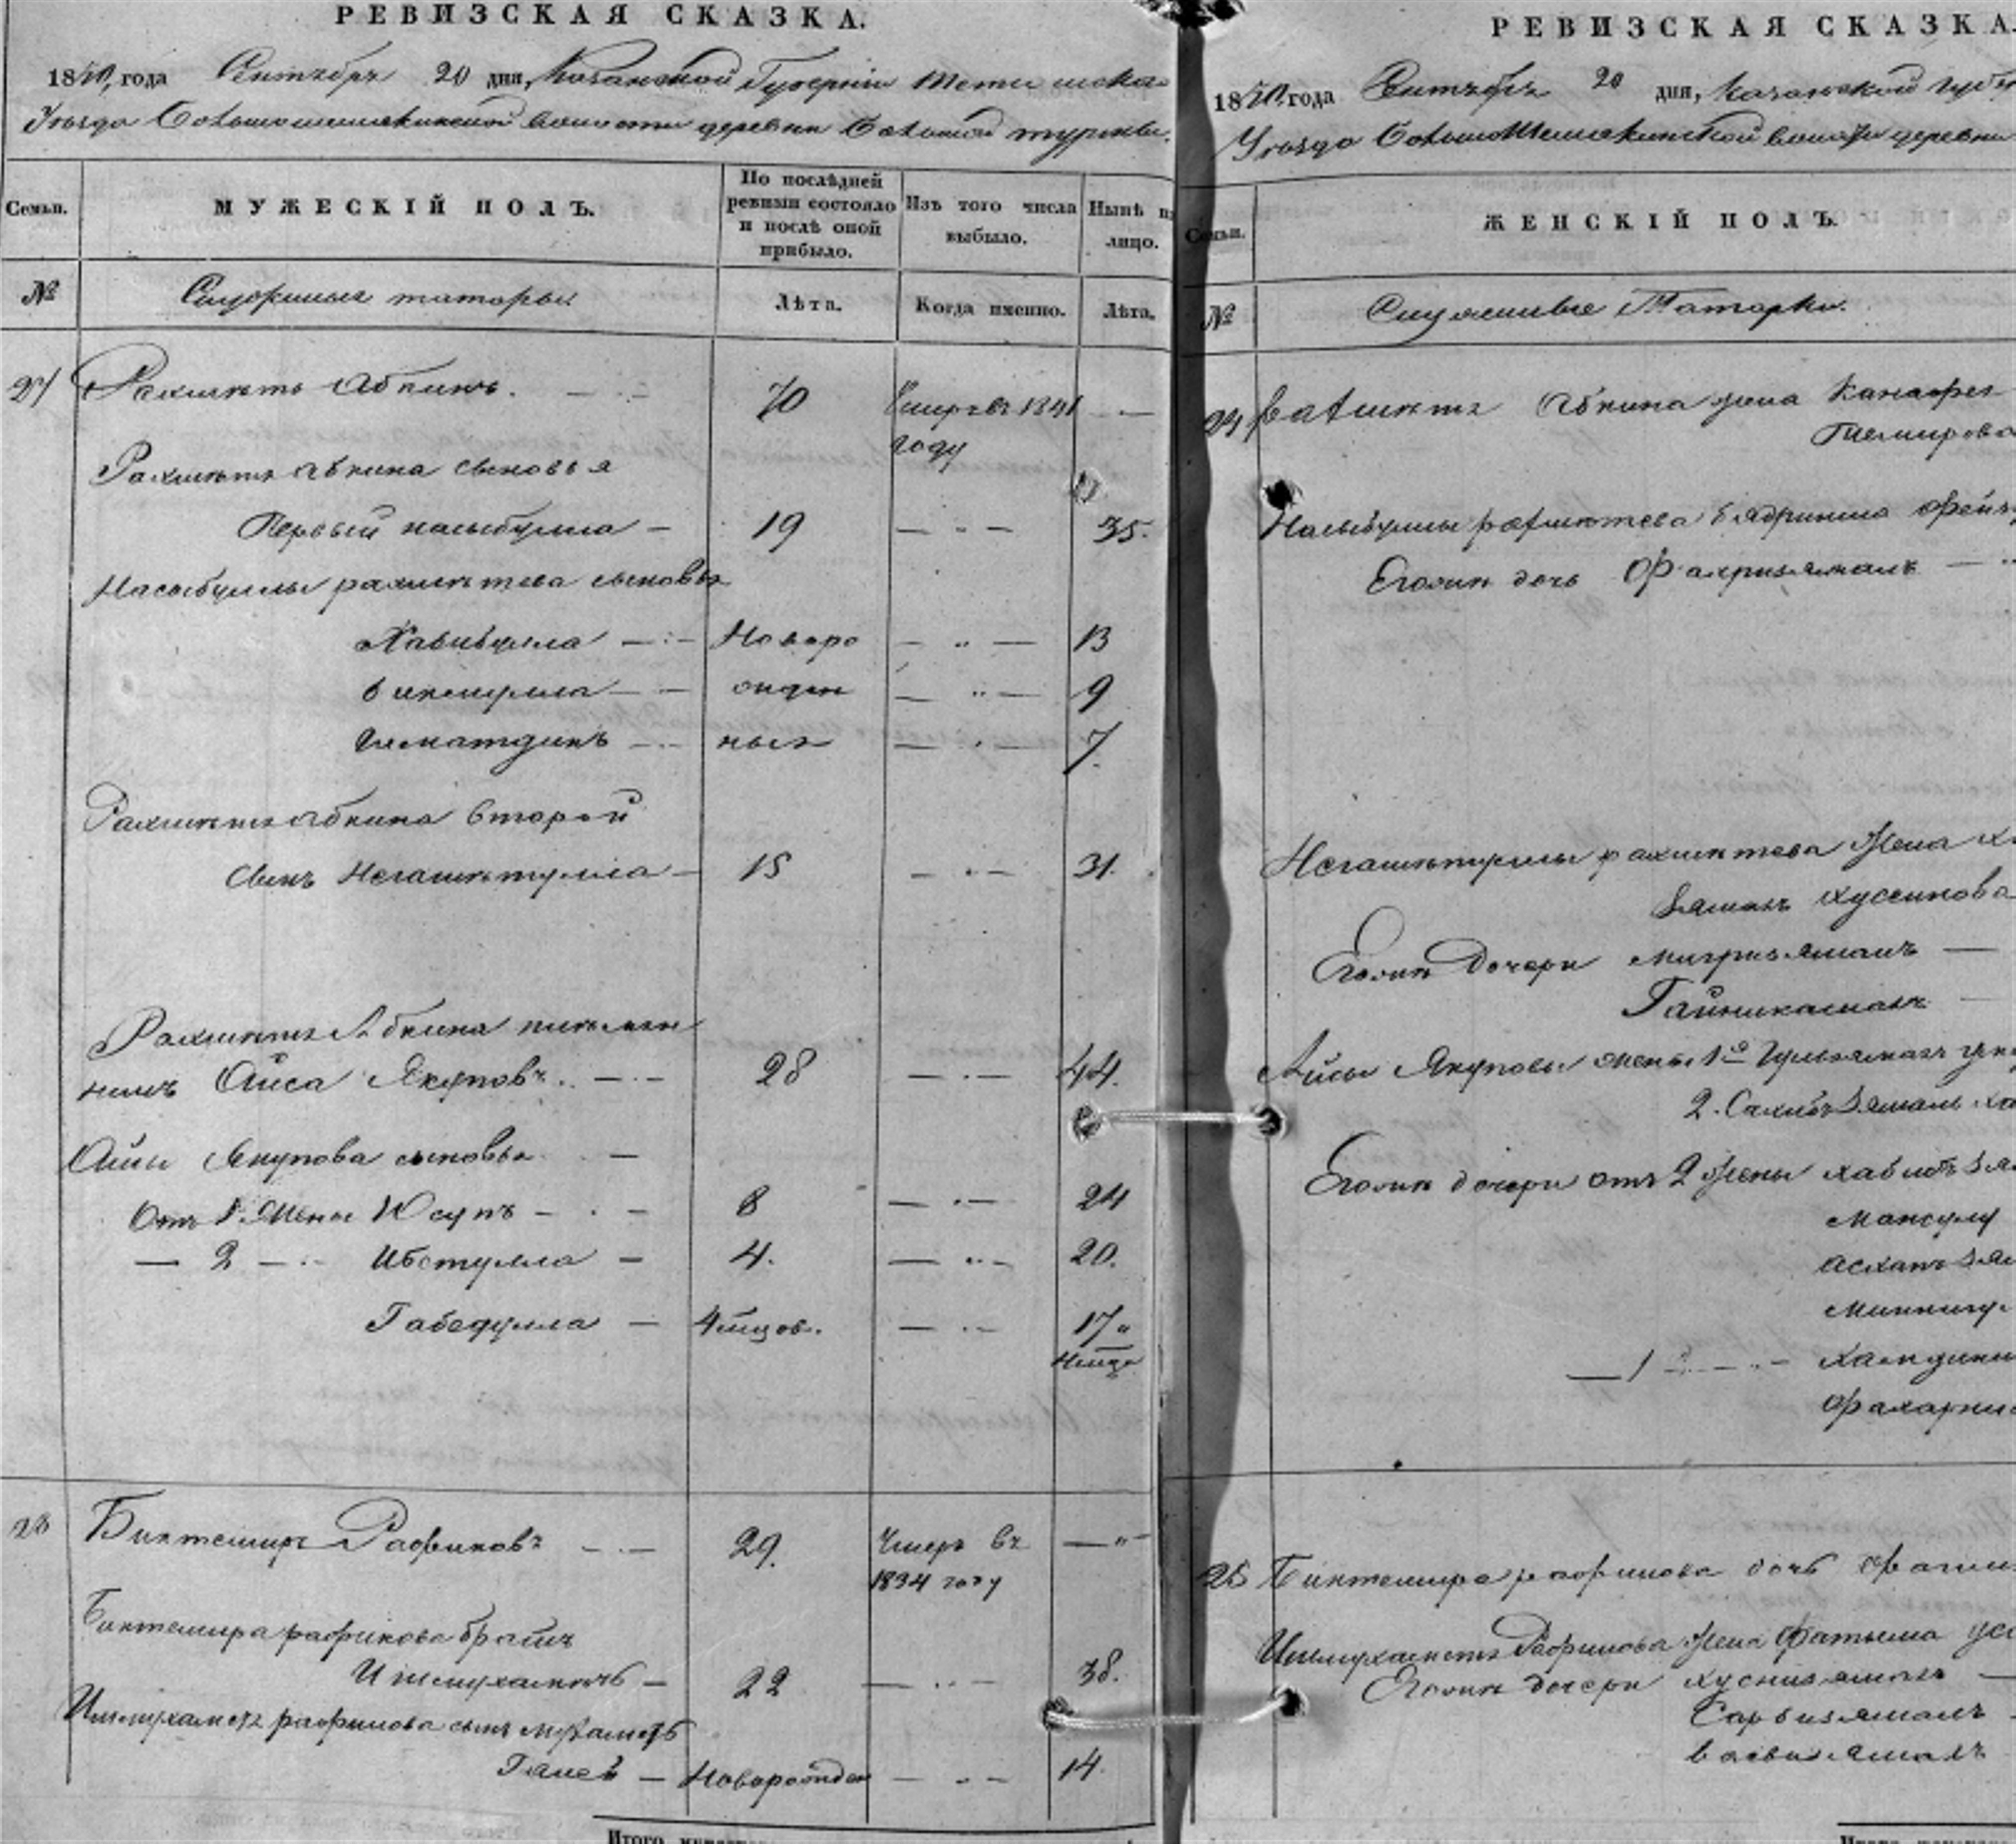 РЕВИЗСКАЯ СКАЗКА.
1850, года Сентября 20 дня, Казанской Губернии Тетюшска
Уезда Большошемякинской волости деревни Большой турмы.
Семьи.
МУЖЕСКІЙ ПОЛЪ.
По послѣдней ревизіи состояло и послѣ оной прибыло.
Изъ того числа выбыло.
Нынѣ на лицо.
№
Служилые татары
Лѣта.
Когда именно.
Лѣта.
27 Рахметь Абкинъ. 70 Умеръ въ 1841 году
Рахметя абкина сыновья
Первый насыбулла 19 35.
Насыбуллы рахметева сыновья
Хабибулла Новоро 13
бикмулла жден 9
Гематдинъ ныя 7.
Рахметя абкина второй
сынъ Негаметулла 15 31.
Рахметя Абкина племян
никъ Айса Якуповъ. 28 44.
Айсы Якупова сыновья
Отъ 1. жены Юсупъ 8 24
— 2 — Ибетулла 4. 20.
Габедулла 4 мцов. 17
4 мца
28 Биктемиръ Рафиковъ 29. Умеръ въ 1834 году
Биктемира рафикова братъ
Ишмухаметь 22 38.
Ишмухаметя рафикова сынъ мухаметь
Галей Новорожден 14.
Итого
РЕВИЗСКАЯ СКАЗКА.
1850, года Сентября 20 дня, Казанской Губе
Уезда Большошемякинской волости деревни
Семьи.
ЖЕНСКІЙ ПОЛЪ.
№
Служилые Татарки.
27 рахметя Абкина жена Канафея
Темирова
Насыбуллы рахметева Бядринина фейз
Егожъ дочь Фахризямалъ
Негаметуллы рахметева жена
зямалъ хуссинова
Егожъ дочери мигризямалъ
Гайникамалъ
Айсы Якупова жены 1я Гульзямалъ
2. Сахибъ зямалъ
Егожъ дочери отъ 2 жены хабибъ зя
Мансулу
Асхапъ зя
Миннигу
— 1
Фахарни
28 Биктемира рафикова дочь
Ишмухаметя Рафикова жена Фатыма
Егожъ дочери хуснизямалъ
Сарбизямалъ